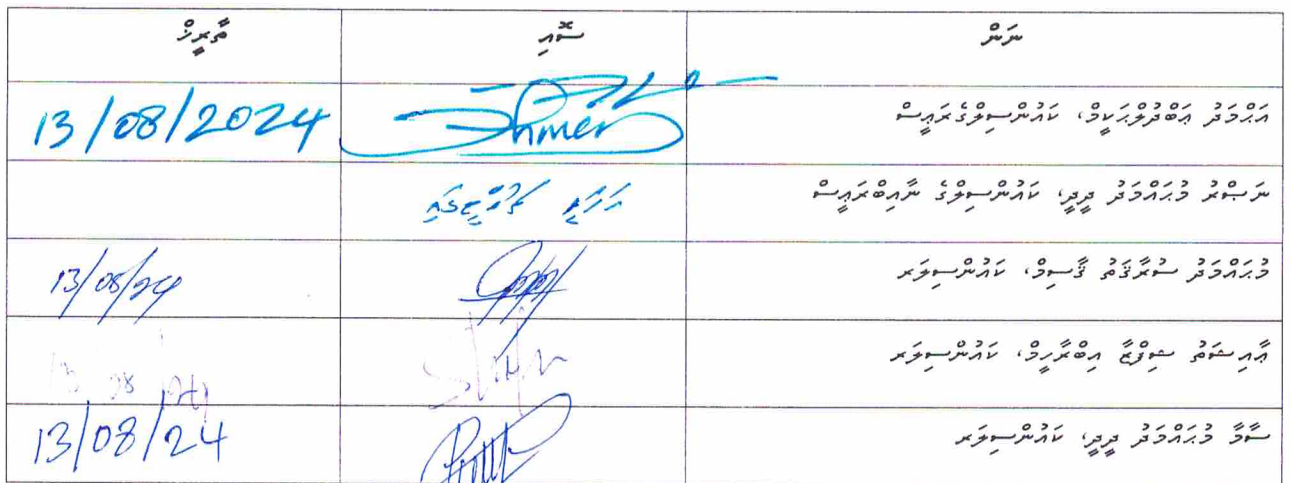 ނަން ސޮއި ތާރީޚް
އަޙްމަދު ޢަބްދުލްޙަކީމް، ކައުންސިލްގެރައީސް 13/08/2024
ނަޞްރު މުޙައްމަދު ދީދީ، ކައުންސިލްގެ ނާއިބްރައީސް
މުޙައްމަދު ސުރާޤަތު ޤާސިމް، ކައުންސިލަރ 13/08/24
ޢާއިޝަތު ޝިފްޒާ އިބްރާހީމް، ކައުންސިލަރ 13 08 24
ސާމާ މުޙައްމަދު ދީދީ، ކައުންސިލަރ 13/08/24